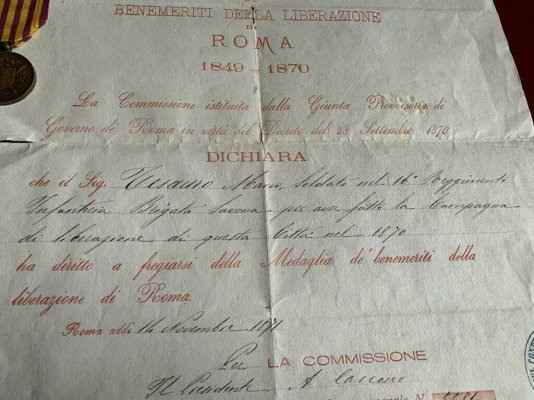 AI
BENEMERITI DELLA LIBERAZIONE
DI
ROMA
1849-1870
La Commissione istituita dalla Giunta Provvisoria di
Governo di Roma in virtù del Decreto del 28 Settembre 1870
DICHIARA
che il Sig. Tesauro Marco Soldato nel 16° Reggimento
Infanteria Brigata Savona per aver fatto la Campagna
di liberazione di questa Città nel 1870
ha diritto a fregiarsi della Medaglia de' benemeriti della
liberazione di Roma.
Roma addì 14 Novembre 1871
Per LA COMMISSIONE
Il Presidente A
N.